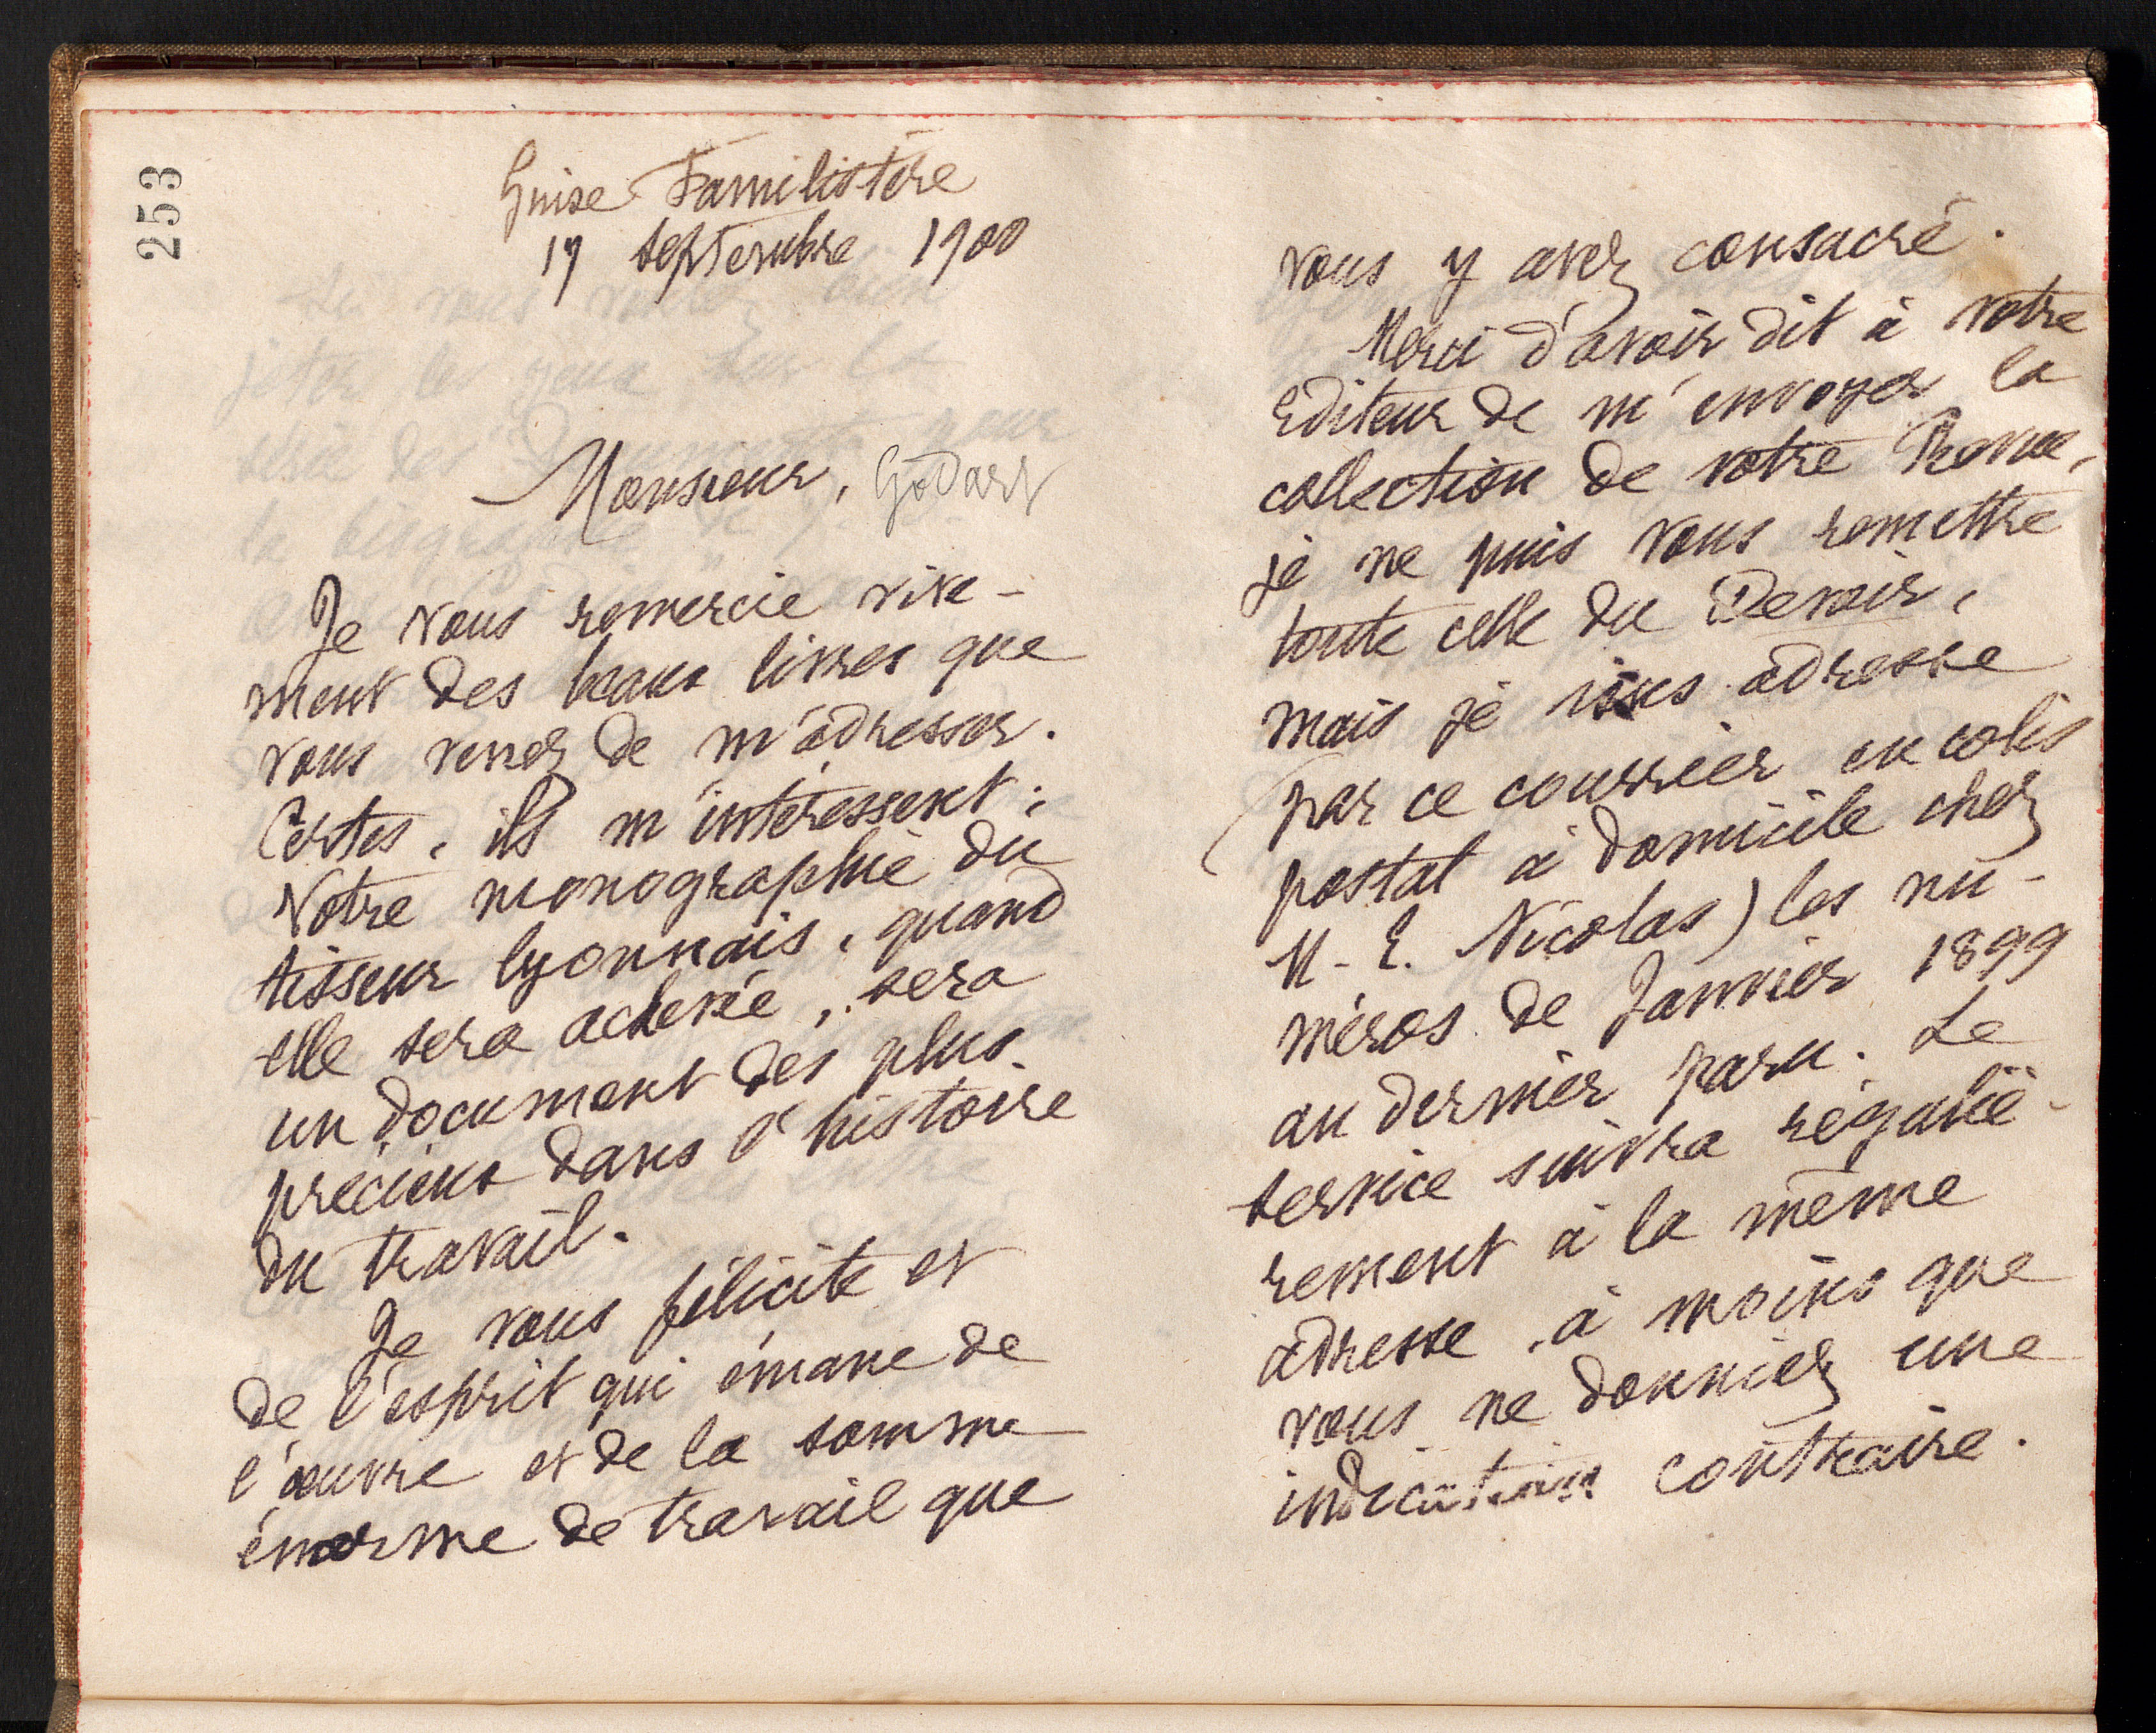 253
Guise Familistère
17 septembre 1900
Monsieur, Godart
Je vous remercie vive-
ment des beaux livres que
vous venez de m'adresser.
Certes, ils m'intéressent;
Votre monographie du
tisseur lyonnais, quand
elle sera achevée, sera
un document des plus
précieux dans l'histoire
du travail.
Je vous félicite et
de l'esprit qui émane de
l'œuvre et de la somme
énorme de travail que
vous y avez consacré.
Merci d'avoir dit à votre
Editeur de m'envoyer la
collection de votre Revue,
je ne puis vous remettre
toute celle du Devoir,
mais je vous adresse
(par ce courrier en colis
postal à domicile chez
M. E. Nicolas) les nu-
méros de Janvier 1899
au dernier paru. Le
service suivra réguliè-
rement à la même
adresse, à moins que
vous ne donniez une
indication contraire.